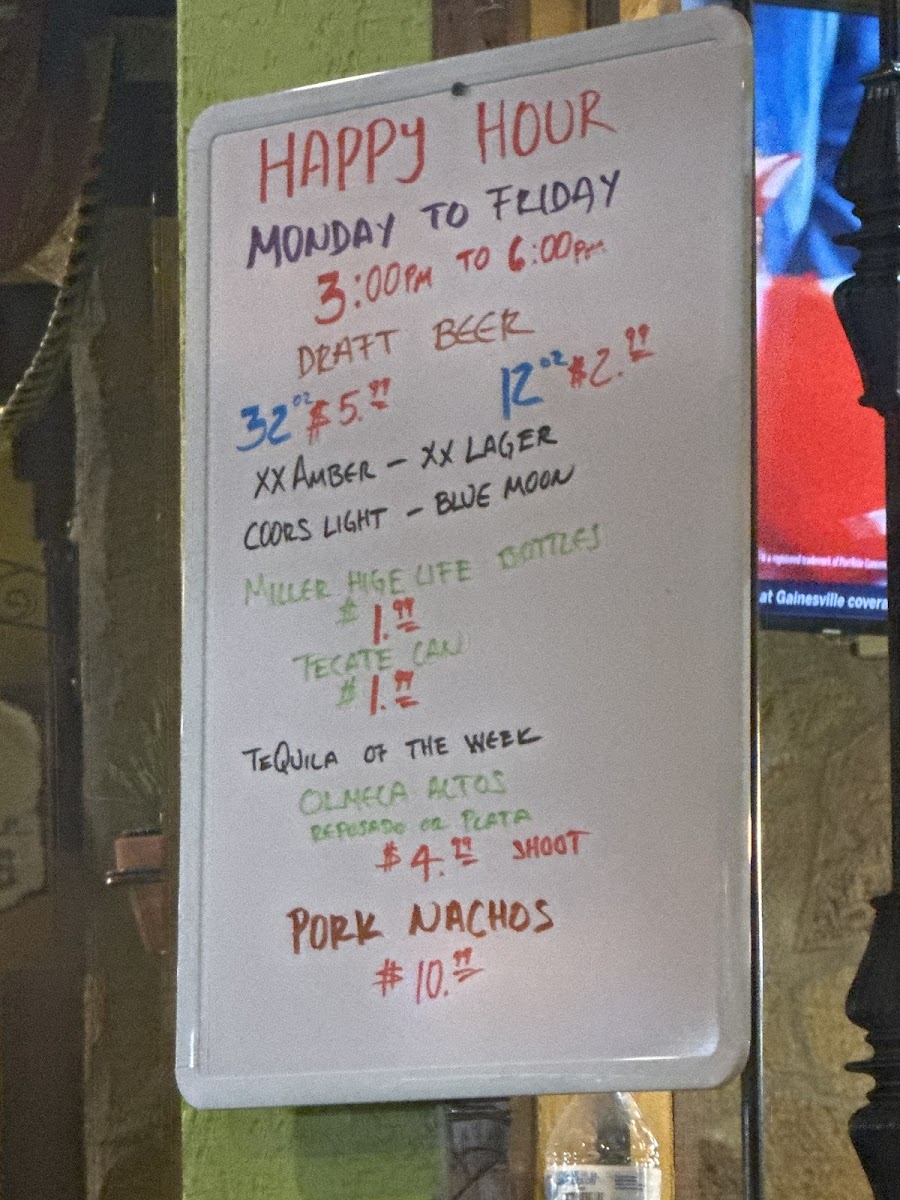 HAPPY HOUR
MONDAY TO FRIDAY
3:00PM TO 6:00PM
DRAFT BEER
32oz $5.99 12oz $2.99
XX AMBER - XX LAGER
COORS LIGHT - BLUE MOON
MILLER HIGE LIFE BOTTLES
$1.99
TECATE CAN
$1.99
TEQUILA OF THE WEEK
OLMECA ALTOS
REPOSADO OR PLATA
$4.99 SHOOT
PORK NACHOS
$10.99
at Gainesville covera